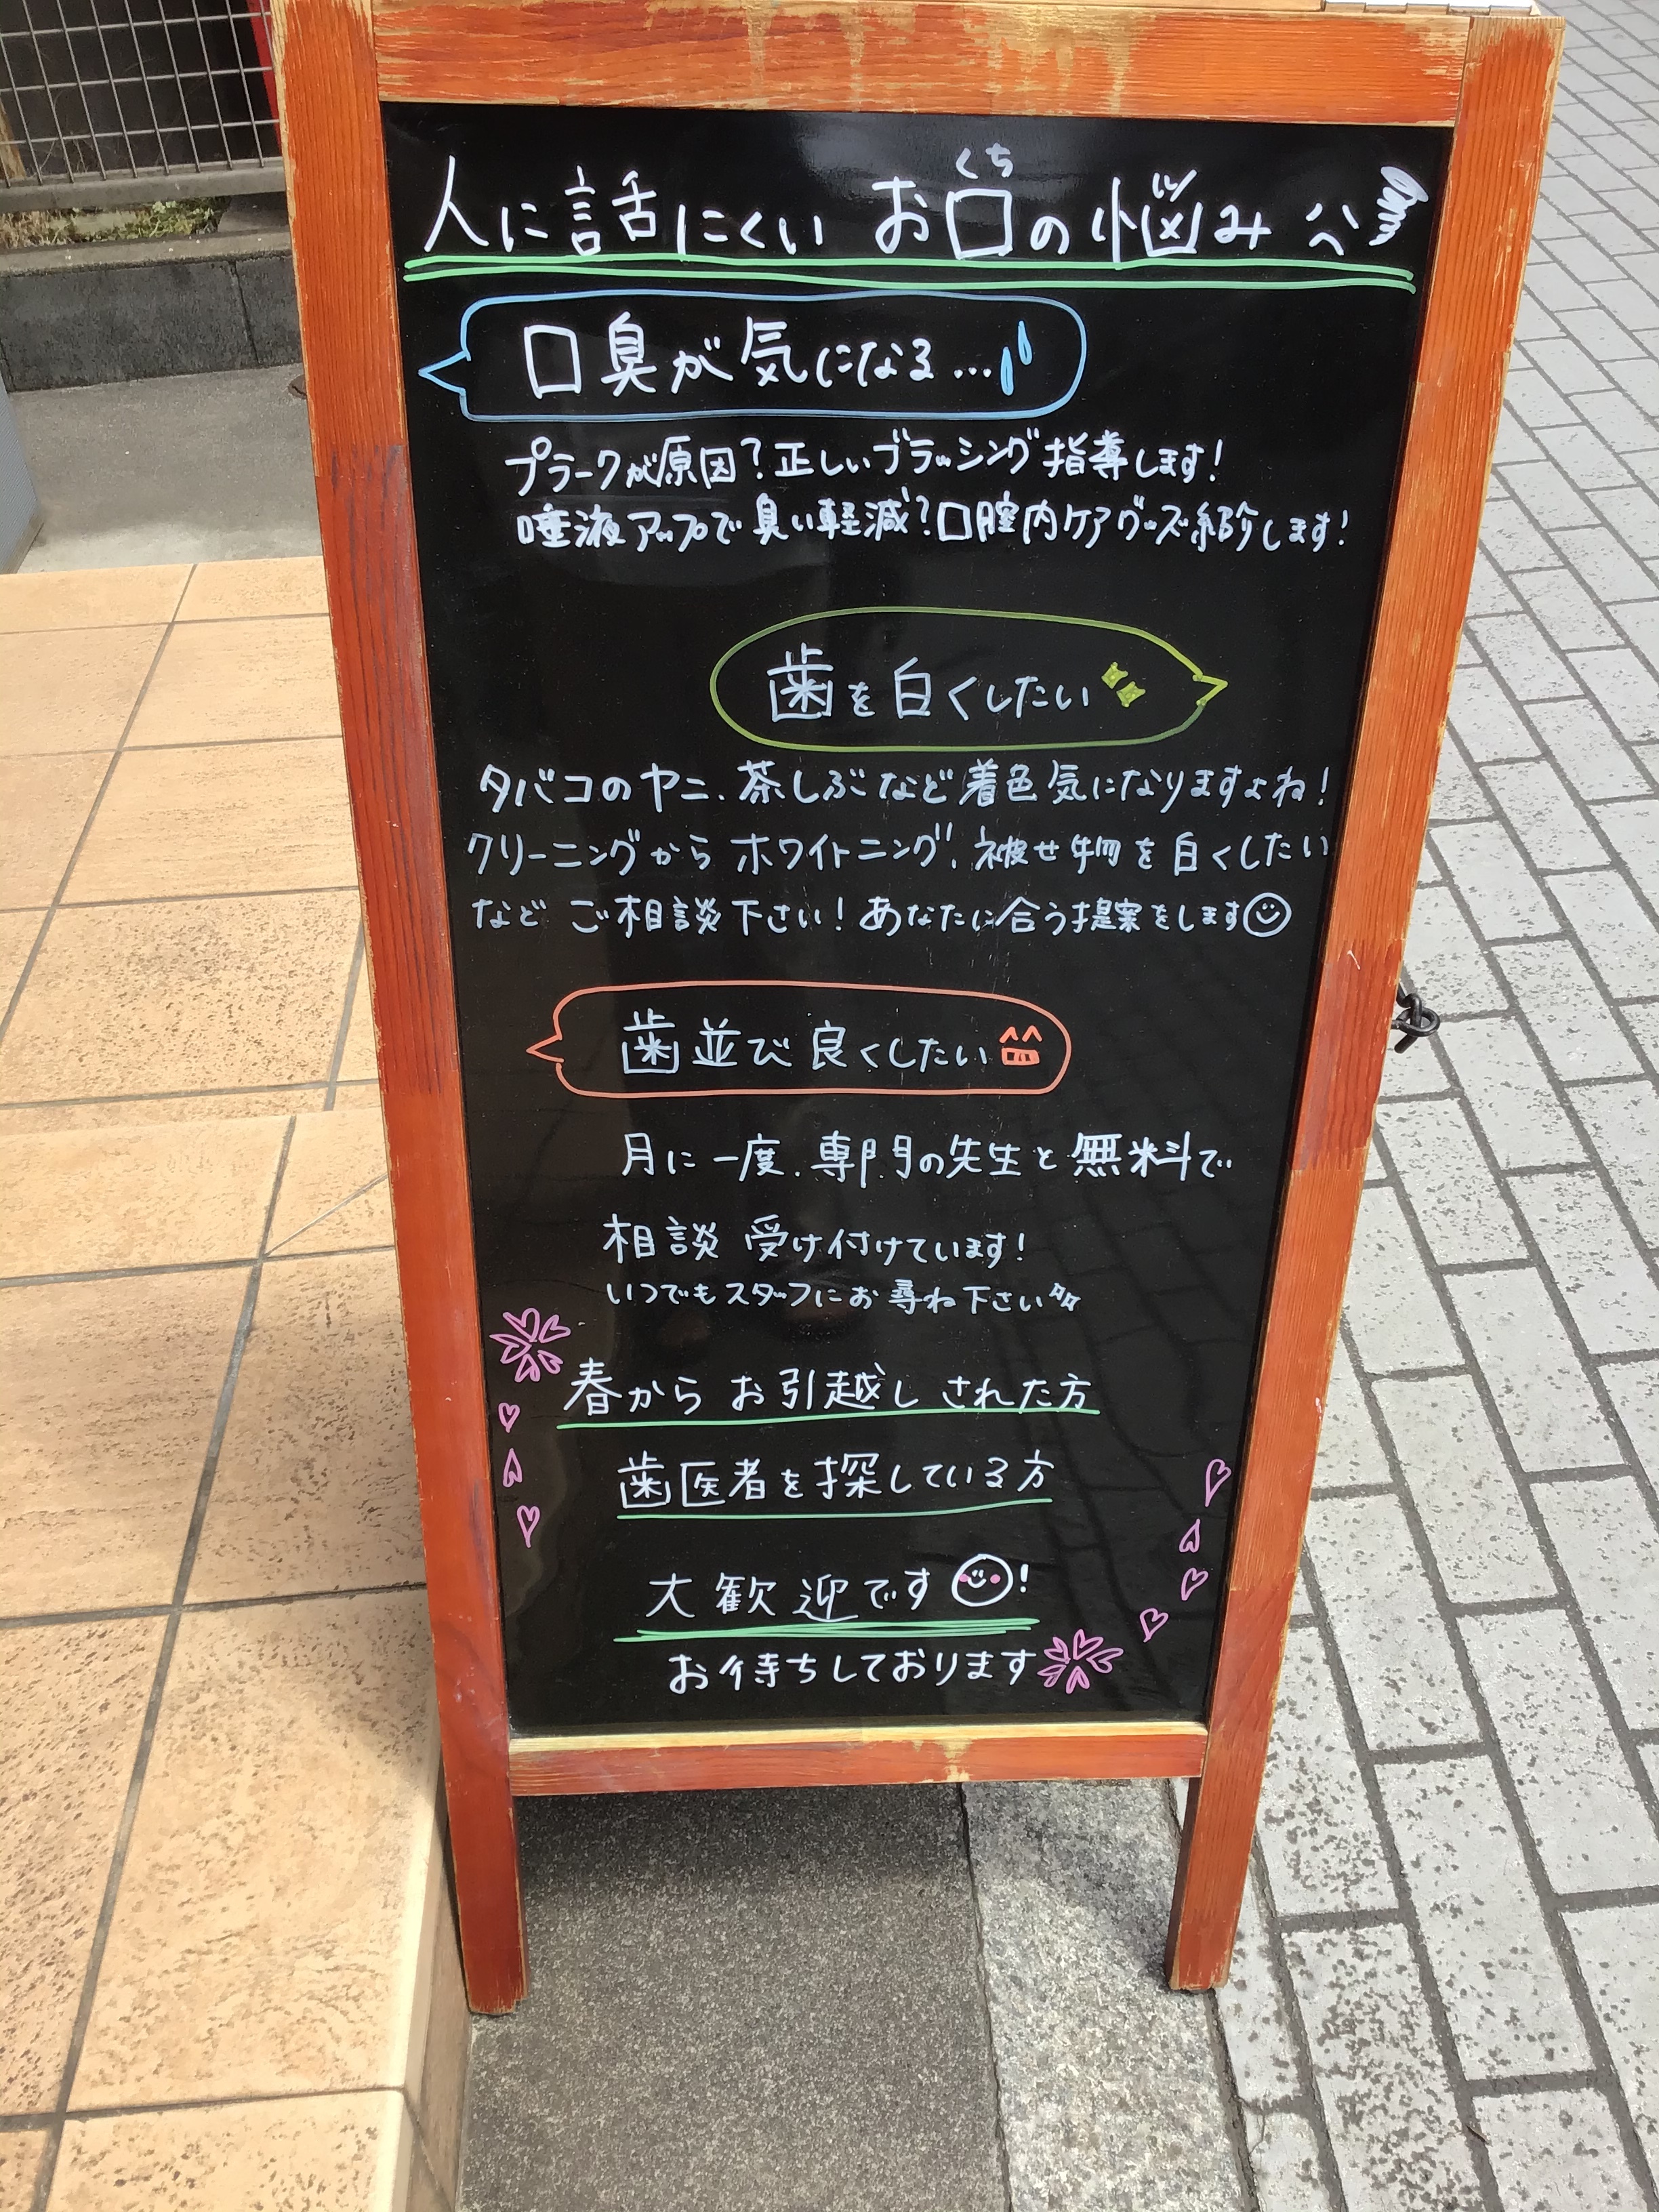 人に話にくい お口の悩み
くち
口臭が気になる...
プラークが原因?正しいブラッシング指導します!
唾液アップで臭い軽減?口腔内ケアグッズ紹介します!
歯を白くしたい
タバコのヤニ、茶しぶなど着色気になりますよね!
クリーニングからホワイトニング、被せ物を白くしたい
など ご相談下さい!あなたに合う提案をします
歯並び良くしたい
月に一度、専門の先生と無料で
相談 受け付けています!
いつでもスタッフにお尋ね下さい
春からお引越しされた方
歯医者を探している方
大歓迎です!
お待ちしております